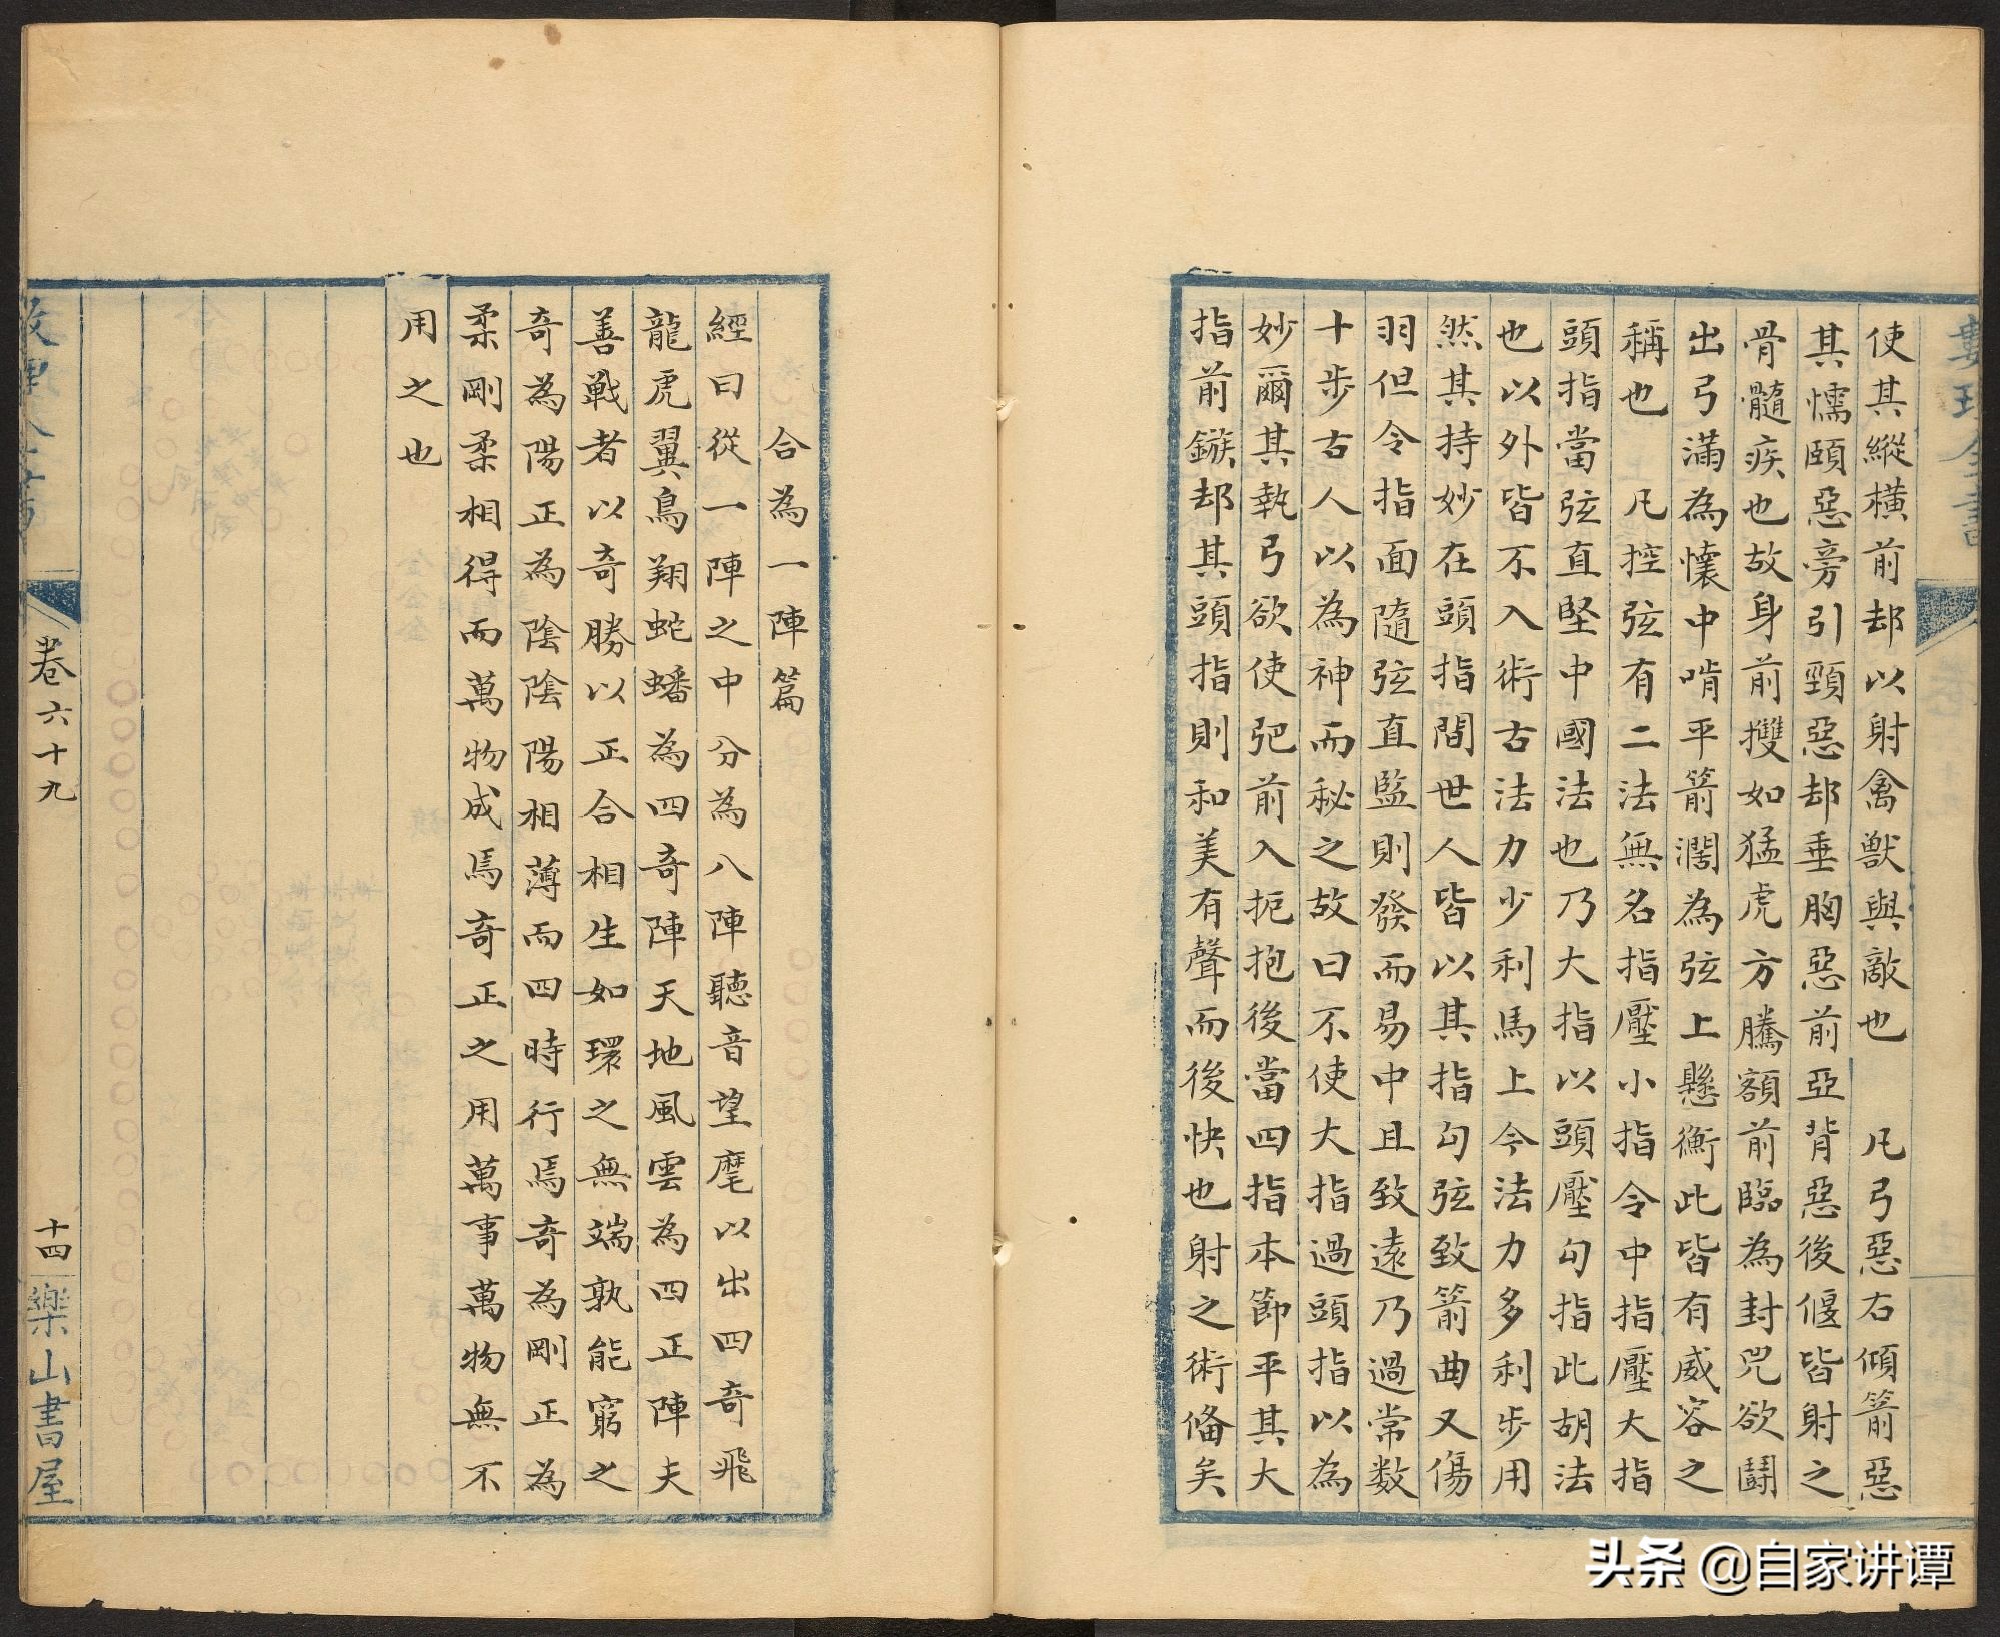 數理全書
使其縱橫前却以射禽獸與敵也　凡弓惡右傾箭惡
其懦頤惡旁引頸惡却垂胸惡前亞背惡後偃皆射之
骨髓疾也故身前攫如猛虎方騰額前臨為封兕欲鬪
出弓滿為懷中啃平箭濶為弦上懸衡此皆有威容之
稱也　凡控弦有二法無名指壓小指令中指壓大指
頭指當弦直堅中國法也乃大指以頭壓勾指此胡法
也以外皆不入術古法力少利馬上今法力多利步用
然其持妙在頭指間世人皆以其指勾弦致箭曲又傷
羽但令指面隨弦直監則發而易中且致遠乃過常数
十步古人以為神而秘之故曰不使大指過頭指以為
妙爾其執弓欲使弝前入扼抱後當四指本節平其大
指前鏃却其頭指則和美有聲而後快也射之術俻矣
合為一陣篇
經曰從一陣之中分為八陣聽音望麾以出四奇飛
龍虎翼鳥翔蛇蟠為四奇陣天地風雲為四正陣夫
善戰者以奇勝以正合相生如環之無端孰能窮之
奇為陽正為陰陰陽相薄而四時行焉奇為剛正為
柔剛柔相得而萬物成焉奇正之用萬事萬物無不
用之也
卷六十九
十四
樂山書屋
头条 @自家讲谭